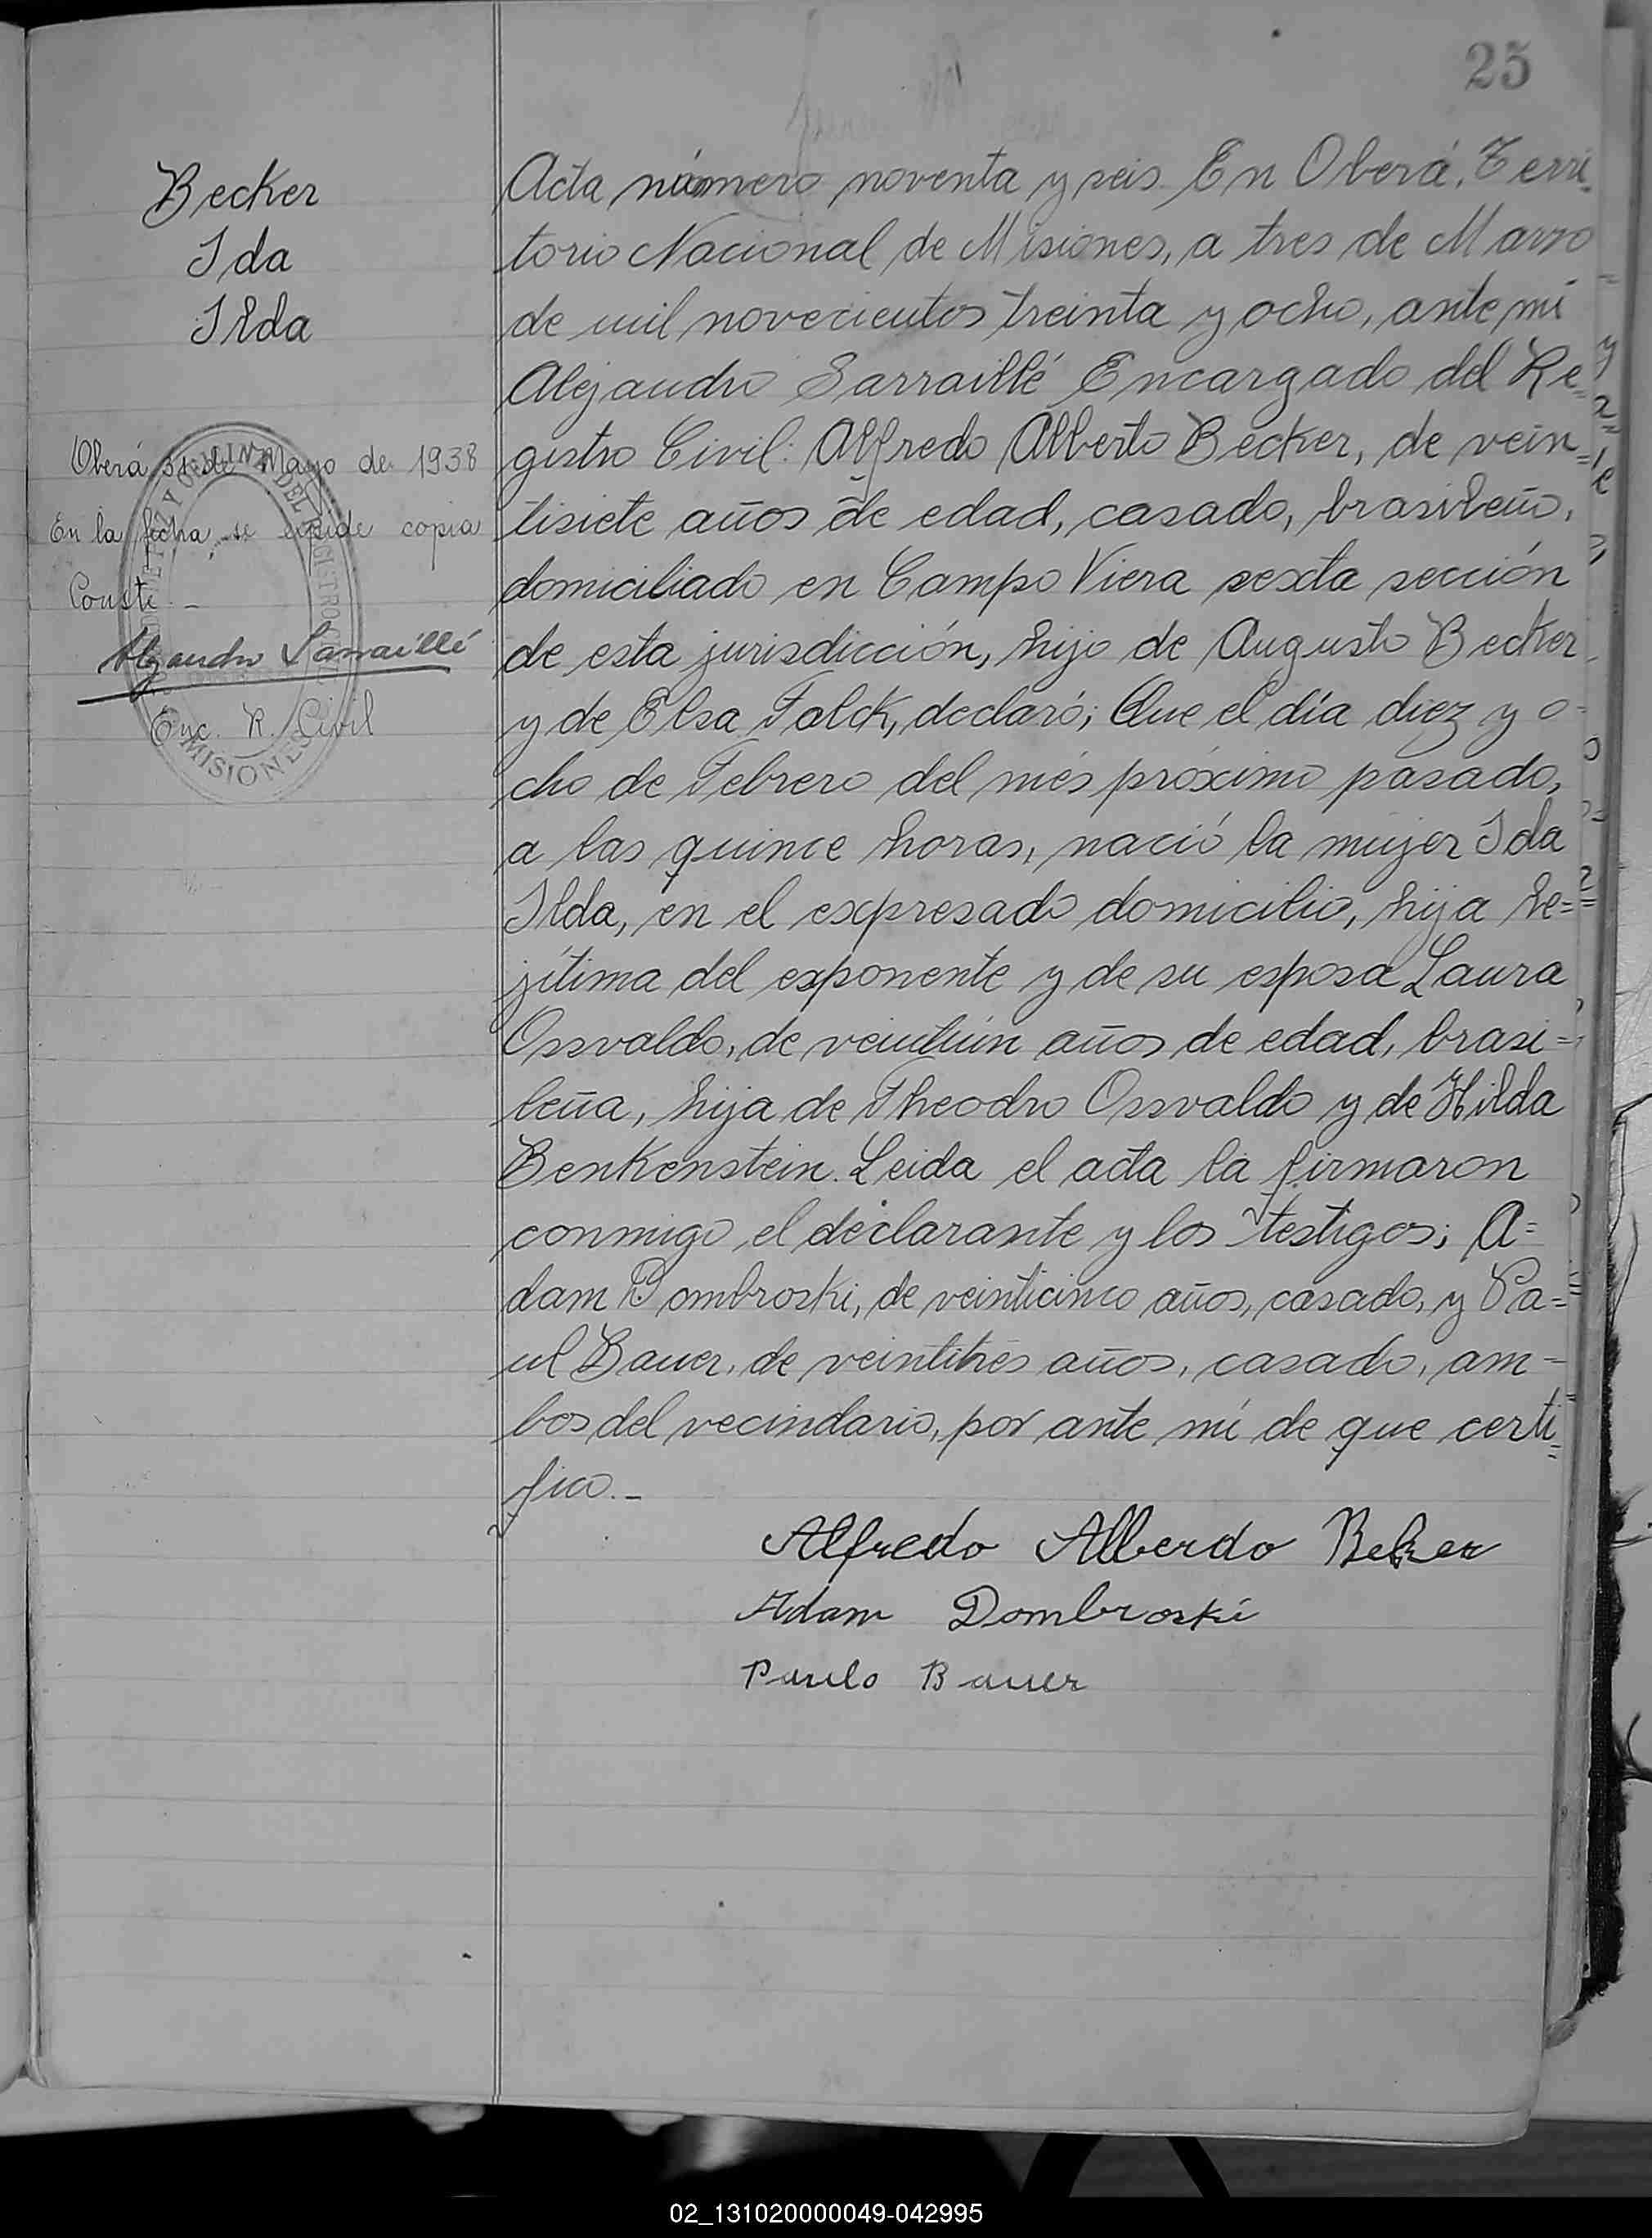 25
Becker
Ida
Ilda
Oberá 31 de Mayo de 1938
En la fecha, se expide copia
Conste. -
Alejandro Sarraillé
Enc. R. Civil
MISIONES
Acta número noventa y seis. En Oberá, Terri-
torio Nacional de Misiones, a tres de Marzo
de mil novecientos treinta y ocho, ante mí
Alejandro Sarraillé Encargado del Re=
gistro Civil: Alfredo Alberto Becker, de vein=
tisiete años de edad, casado, brasileño,
domiciliado en Campo Viera sexta sección
de esta jurisdicción, hijo de Augusto Becker
y de Elsa Falck, declaró; Que el día diez y o=
cho de Febrero del més próximo pasado,
a las quince horas, nació la mujer Ida
Ilda, en el expresado domicilio, hija le=
jítima del exponente y de su esposa Laura
Ossvaldo, de veintiún años de edad, brasi=
leña, hija de Theodro Ossvaldo y de Hilda
Benkenstein. Leida el acta la firmaron
conmigo, el declarante y los testigos; A=
dam Dombroski, de veinticinco años, casado, y Pa=
ul Bauer, de veintitrés años, casado, am-
bos del vecindario, por ante mí de que certi=
fico. -
Alfredo Alberdo Beker
Adam Dombroski
Paulo Bauer
02_131020000049-042995